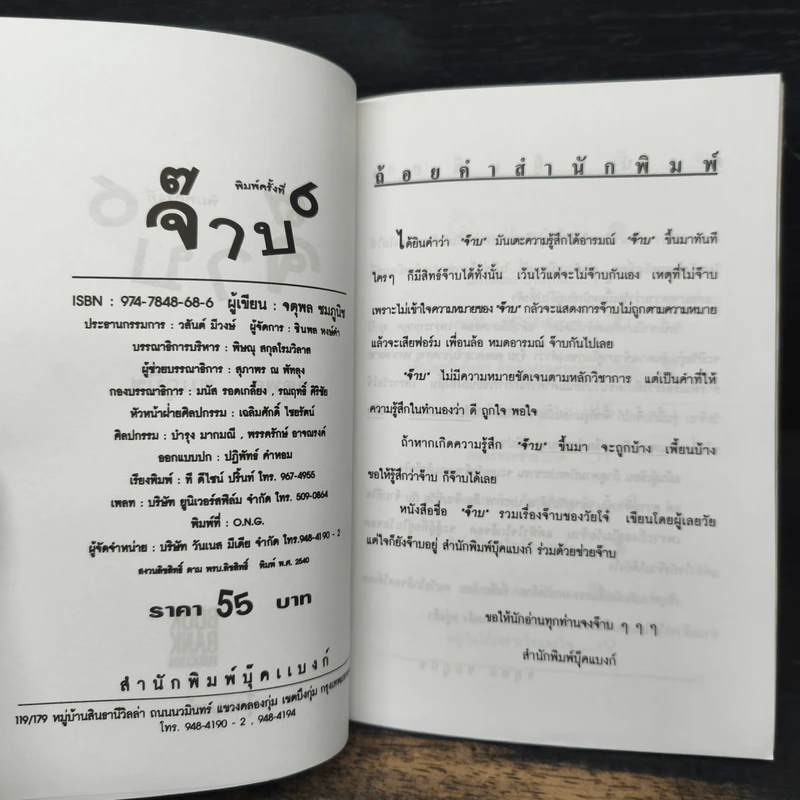 พิมพ์ครั้งที่ ๖
จ๊าบ
ISBN : 974-7848-68-6 ผู้เขียน : จตุพล ชมภูนิช
ประธานกรรมการ : วสันต์ มีวงษ์ ผู้จัดการ : ชินพล หงษ์คำ
บรรณาธิการบริหาร : พิษณุ สกุลโรมวิลาส
ผู้ช่วยบรรณาธิการ : สุภาพร ณ พัทลุง
กองบรรณาธิการ : มนัส รอดเกลี้ยง , รณฤทธิ์ ศิริชัย
หัวหน้าฝ่ายศิลปกรรม : เฉลิมศักดิ์ ไชยรัตน์
ศิลปกรรม : บำรุง มากมณี , พรรดรักษ์ อาจณรงค์
ออกแบบปก : ปฏิพัทธ์ คำหอม
เรียงพิมพ์ : ที ดีไซน์ ปริ้นท์ โทร. 967-4955
เพลท : บริษัท ยูนิเวอร์สฟิล์ม จำกัด โทร. 509-0864
พิมพ์ที่ : O.N.G.
ผู้จัดจำหน่าย : บริษัท วันเนส มีเดีย จำกัด โทร.948-4190 - 2
สงวนลิขสิทธิ์ ตาม พรบ.ลิขสิทธิ์ พิมพ์ พ.ศ. 2540
ราคา 55 บาท
สำนักพิมพ์บุ๊คแบงก์
119/179 หมู่บ้านสินธานีวิลล่า ถนนนวมินทร์ แขวงคลองกุ่ม เขตบึงกุ่ม
โทร. 948-4190 - 2 , 948-4194
ถ้อยคำสำนักพิมพ์
ได้ยินคำว่า "จ๊าบ" มันเตะความรู้สึกได้อารมณ์ "จ๊าบ" ขึ้นมาทันที
ใครๆ ก็มีสิทธ์จ๊าบได้ทั้งนั้น เว้นไว้แต่จะไม่จ๊าบกันเอง เหตุที่ไม่จ๊าบ
เพราะไม่เข้าใจความหมายของ "จ๊าบ" กลัวจะแสดงการจ๊าบไม่ถูกตามความหมาย
แล้วจะเสียฟอร์ม เพื่อนล้อ หมดอารมณ์ จ๊าบกันไปเลย
"จ๊าบ" ไม่มีความหมายชัดเจนตามหลักวิชาการ แต่เป็นคำที่ให้
ความรู้สึกในทำนองว่า ดี ถูกใจ พอใจ
ถ้าหากเกิดความรู้สึก "จ๊าบ" ขึ้นมา จะถูกบ้าง เพี้ยนบ้าง
ขอให้รู้สึกว่าจ๊าบ ก็จ๊าบได้เลย
หนังสือชื่อ "จ๊าบ" รวมเรื่องจ๊าบของวัยโจ๋ เขียนโดยผู้เลยวัย
แต่ใจก็ยังจ๊าบอยู่ สำนักพิมพ์บุ๊คแบงก์ ร่วมด้วยช่วยจ๊าบ
ขอให้นักอ่านทุกท่านจงจ๊าบ ๆ ๆ ๆ
สำนักพิมพ์บุ๊คแบงก์